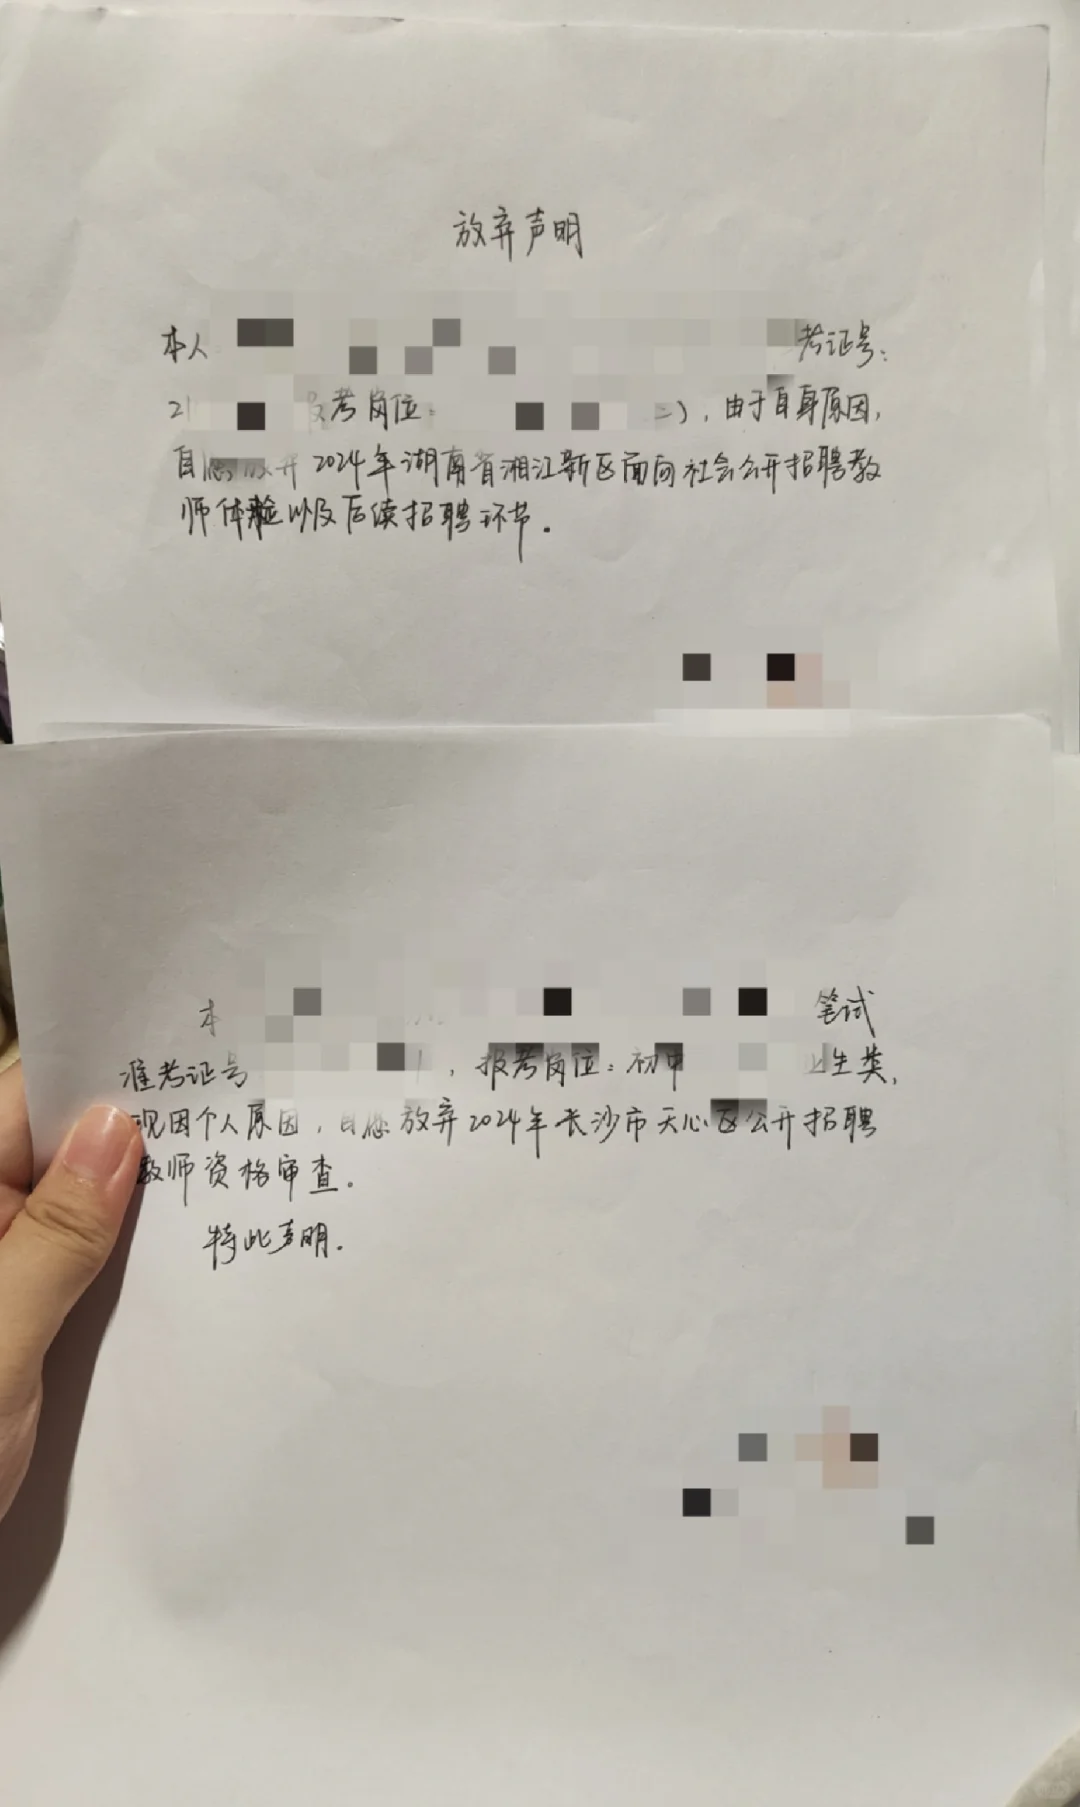 放弃声明
本人 考证号:
21 报考岗位: 二),由于自身原因,
自愿放弃2024年湖南省湘江新区面向社会公开招聘教
师体验以及后续招聘环节。
本 笔试
准考证号 ,报考岗位:初中 生类,
现因个人原因,自愿放弃2024年长沙市天心区公开招聘
教师资格审查.
特此声明.